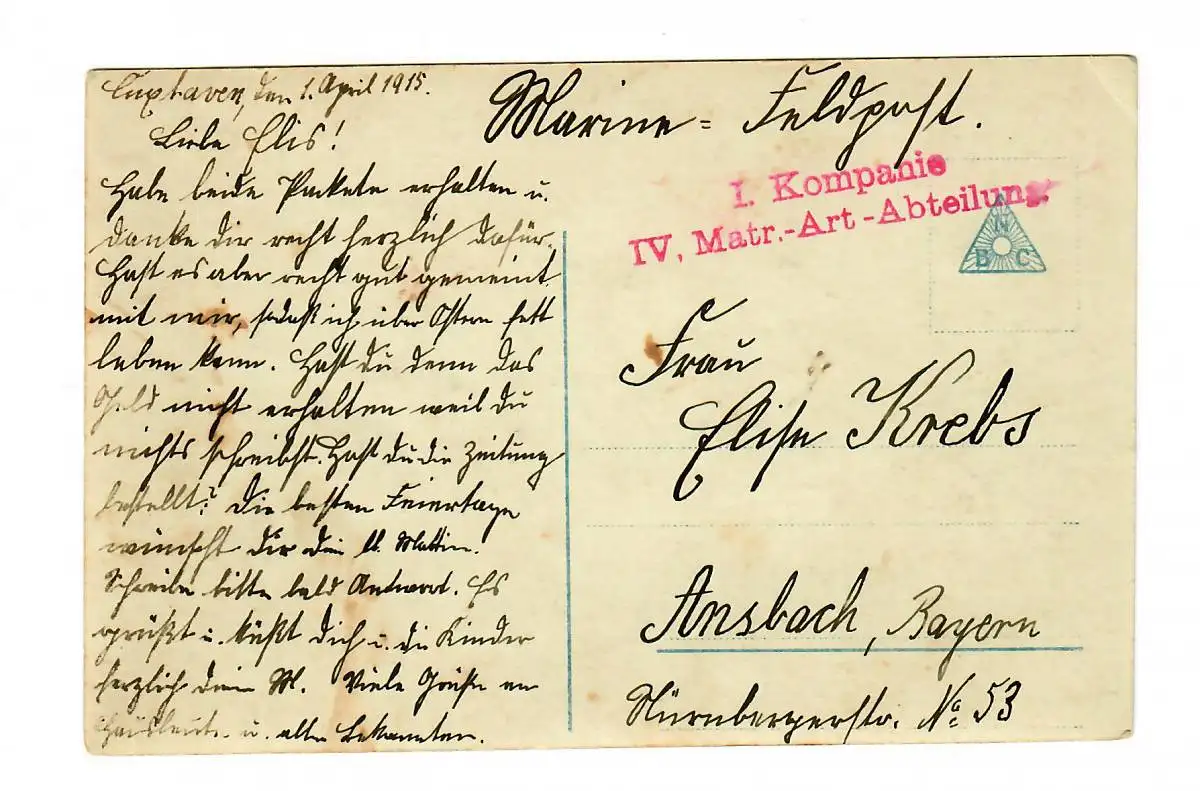 Cuxhaven, den 1. April 1915.
Liebe Elis!
Habe beide Packete erhalten u.
danke dir recht herzlich dafür.
Hast es aber recht gut gemeint
mit mir, sodaß ich über Ostern fett
leben kann. Hast du denn das
Geld nicht erhalten weil du
nichts schreibst. Hast du die Zeitung
bestellt? Die besten Feiertage
wünscht dir dein lb.
Schreibe bitte bald Antwort. Es
grüßt u. küßt dich u. die Kinder
herzlich dein M. Viele Grüße an
Hausleute u. alle Bekannten.
Marine-Feldpost.
I. Kompanie
IV, Matr.-Art-Abteilung.
N
B C
Frau
Elise Krebs
Ansbach, Bayern
Nürnbergerstr. No 53